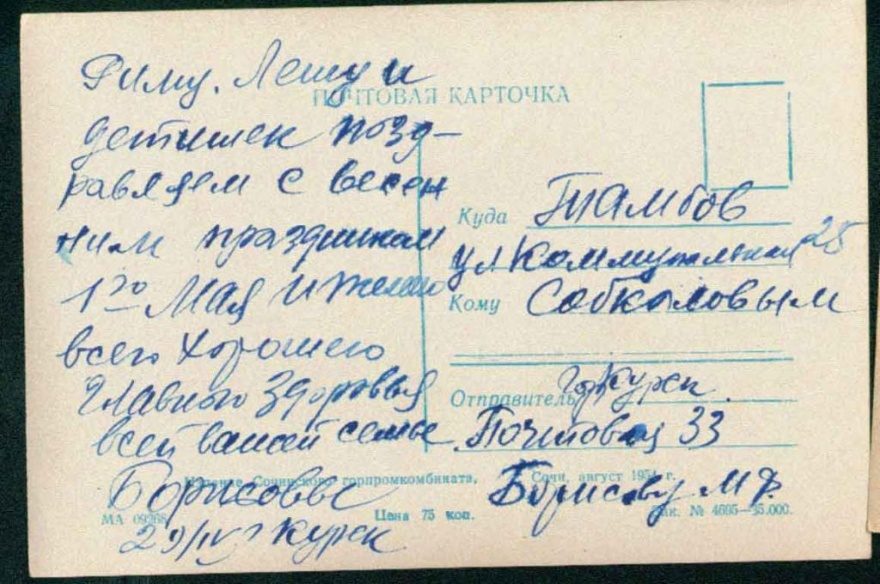 Риму. Лешу и
ПОЧТОВАЯ КАРТОЧКА
детишек позд-
равляем с весен
ним праздником
1го Мая и желаю
всего хорошего
Главного здоровья
всей вашей семье
Борисовы
29/IV Курск
Куда Тамбов
ул Коммунальная 25
Кому Собколовым
Отправитель гор Курск.
Почтовая 33
Борисову М Ф
Издание Сочинского горпромкомбината, Сочи, август 1954 г.
МА 09268 Цена 75 коп. Зак. № 4695—35.000.